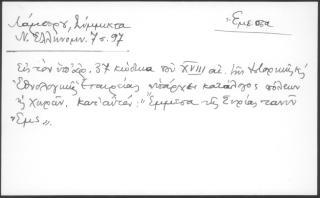 Λάμπρου, Σύμμικτα
Ν. Ἑλληνομν. 7 σ. 97
Ἔμεσσα
Εἰς τὸν ὑπ' ἀρ. 37 κώδικα τοῦ XVIII αἰ. τῆς Ἱστορικῆς κ
Ἐθνολογικῆς Ἑταιρείας ὑπάρχει κατάλογος πόλεων
ἢ χωρῶν. κατ' αὐτόν: "Ἔμμεσα τῆς Συρίας τανῦν
Ἐμς".